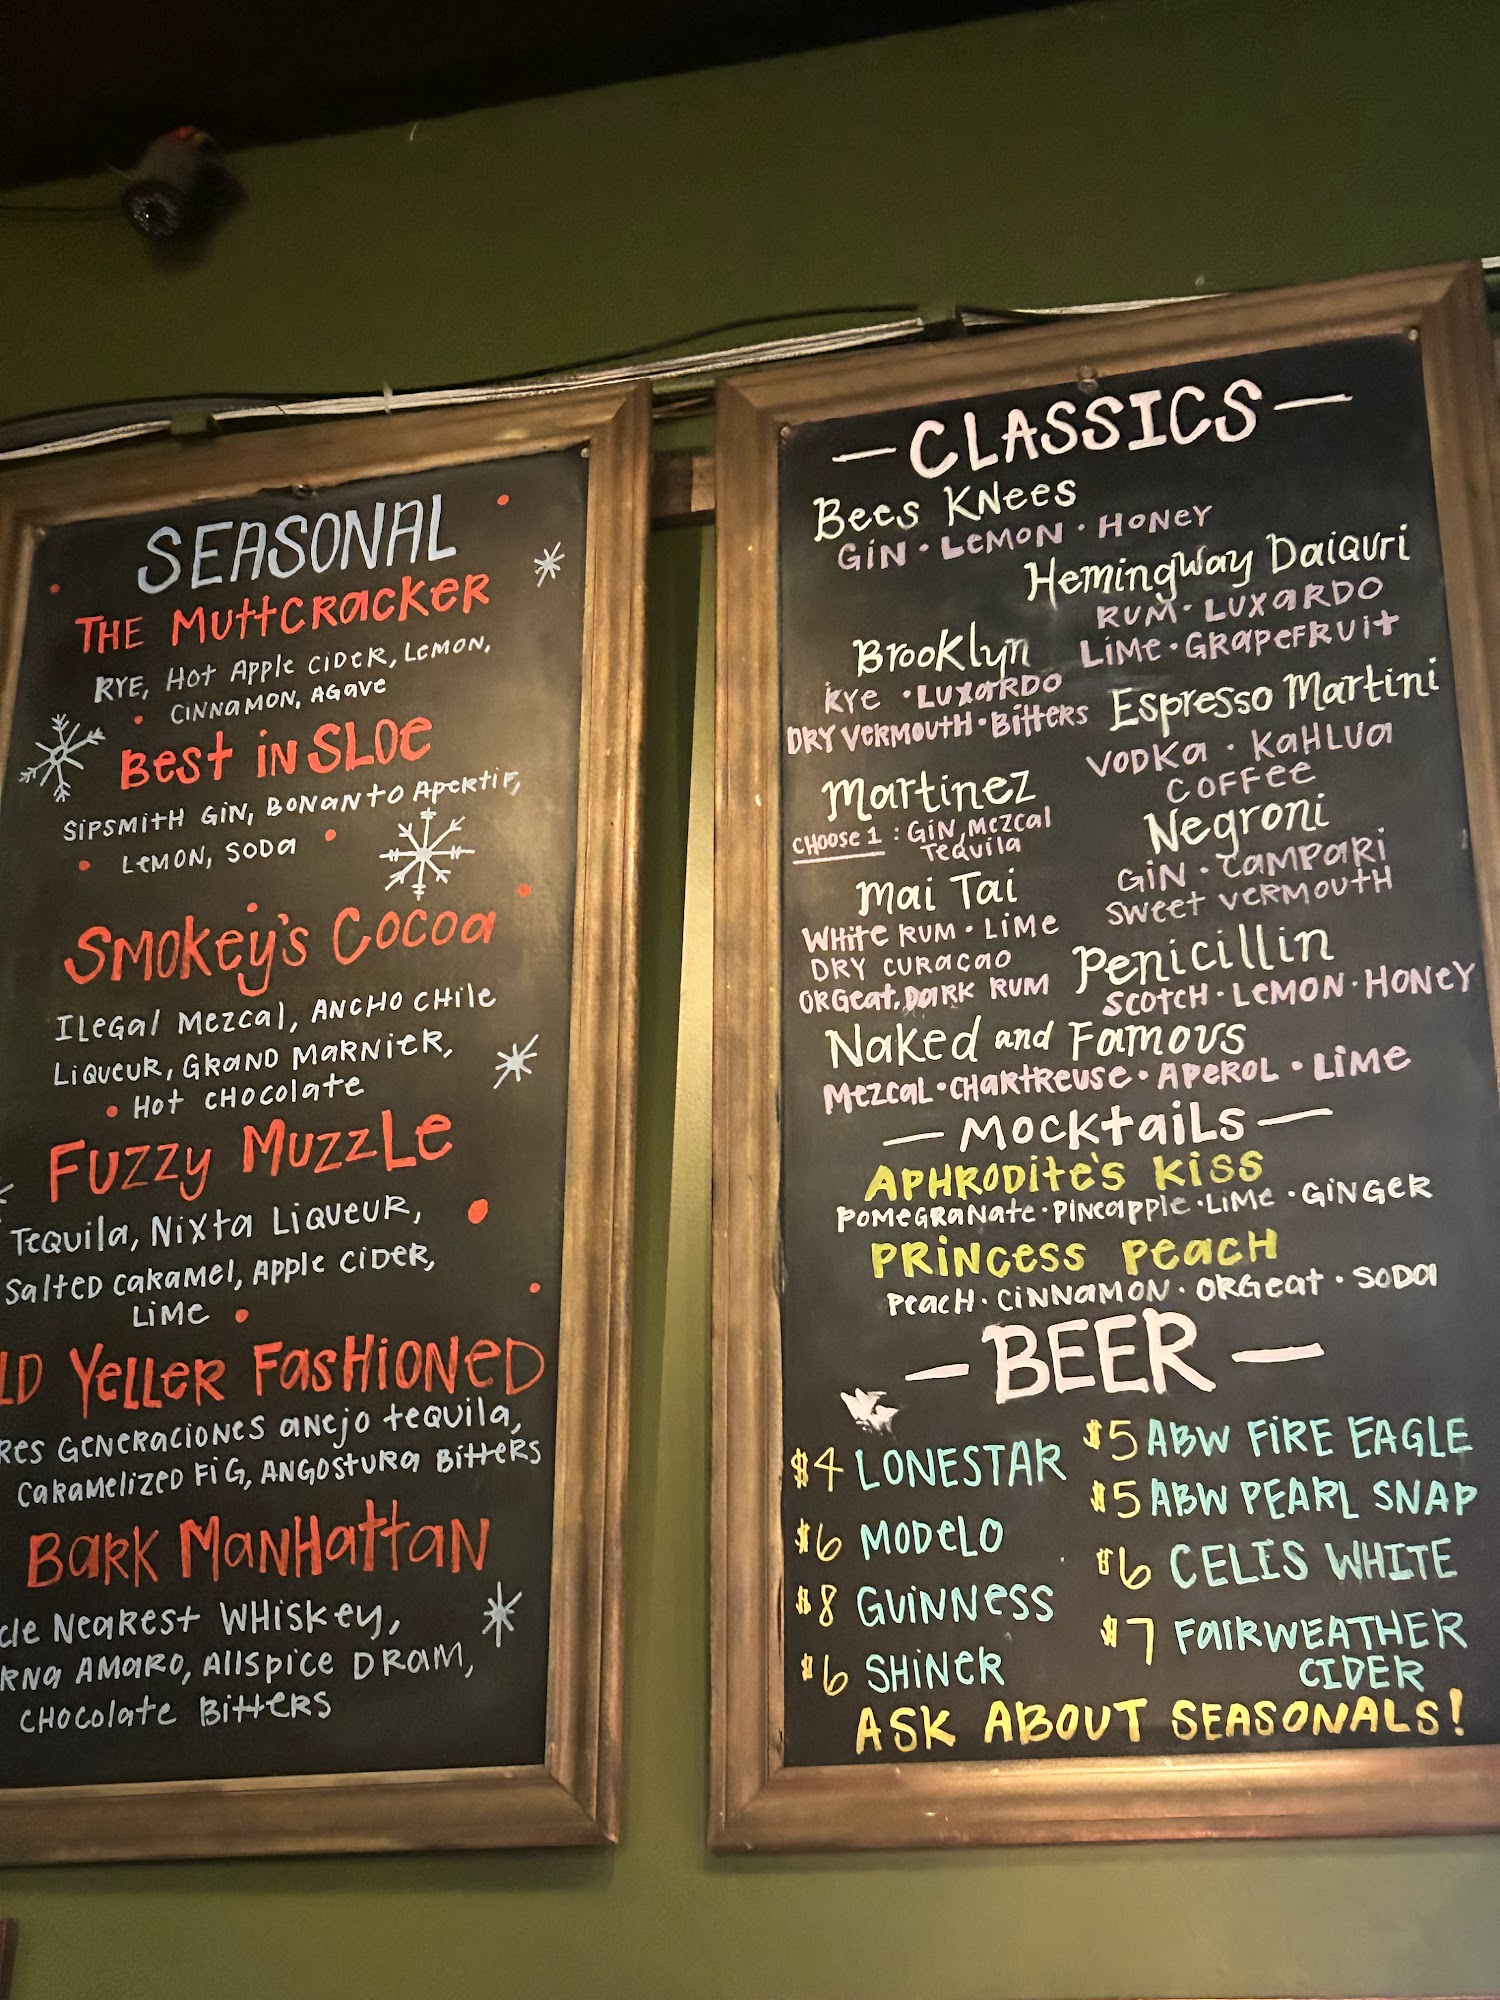 SEASONAL
THE MUTTCRACKER
RYE, HOT APPLE CIDER, LEMON,
CINNAMON, AGAVE
BEST IN SLOE
SIPSMITH GIN, BONANTO APERTIF,
LEMON, SODA
SMOKEY'S COCOA
ILEGAL MEZCAL, ANCHO CHILE
LIQUEUR, GRAND MARNIER,
HOT CHOCOLATE
FUZZY MUZZLE
TEQUILA, NIXTA LIQUEUR,
SALTED CARAMEL, APPLE CIDER,
LIME
LD YELLER FASHIONED
RES GENERACIONES ANEJO TEQUILA,
CARAMELIZED FIG, ANGOSTURA BITTERS
BARK MANHATTAN
CLE NEAREST WHISKEY,
RNA AMARO, ALLSPICE DRAM,
CHOCOLATE BITTERS
— CLASSICS —
Bees Knees
GIN · LEMON · HONEY
Hemingway Daiquri
RUM · LUXARDO
LIME · GRAPEFRUIT
Brooklyn
RYE · LUXARDO
DRY VERMOUTH · BITTERS
Espresso Martini
VODKA · KAHLUA
COFFEE
Martinez
CHOOSE 1 : GIN, MEZCAL
TEQUILA
Negroni
GIN · CAMPARI
SWEET VERMOUTH
Mai Tai
WHITE RUM · LIME
DRY CURAÇAO
ORGEAT, DARK RUM
Penicillin
SCOTCH · LEMON · HONEY
Naked and Famous
MEZCAL · CHARTREUSE · APEROL · LIME
— MOCKTAILS —
APHRODITE'S KISS
POMEGRANATE · PINEAPPLE · LIME · GINGER
PRINCESS PEACH
PEACH · CINNAMON · ORGEAT · SODA
— BEER —
$4 LONESTAR
$6 MODELO
$8 GUINNESS
$6 SHINER
$5 ABW FIRE EAGLE
$5 ABW PEARL SNAP
$6 CELIS WHITE
$7 FAIRWEATHER
CIDER
ASK ABOUT SEASONALS!